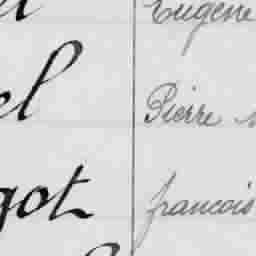 Eugène
el Pierre
got francois